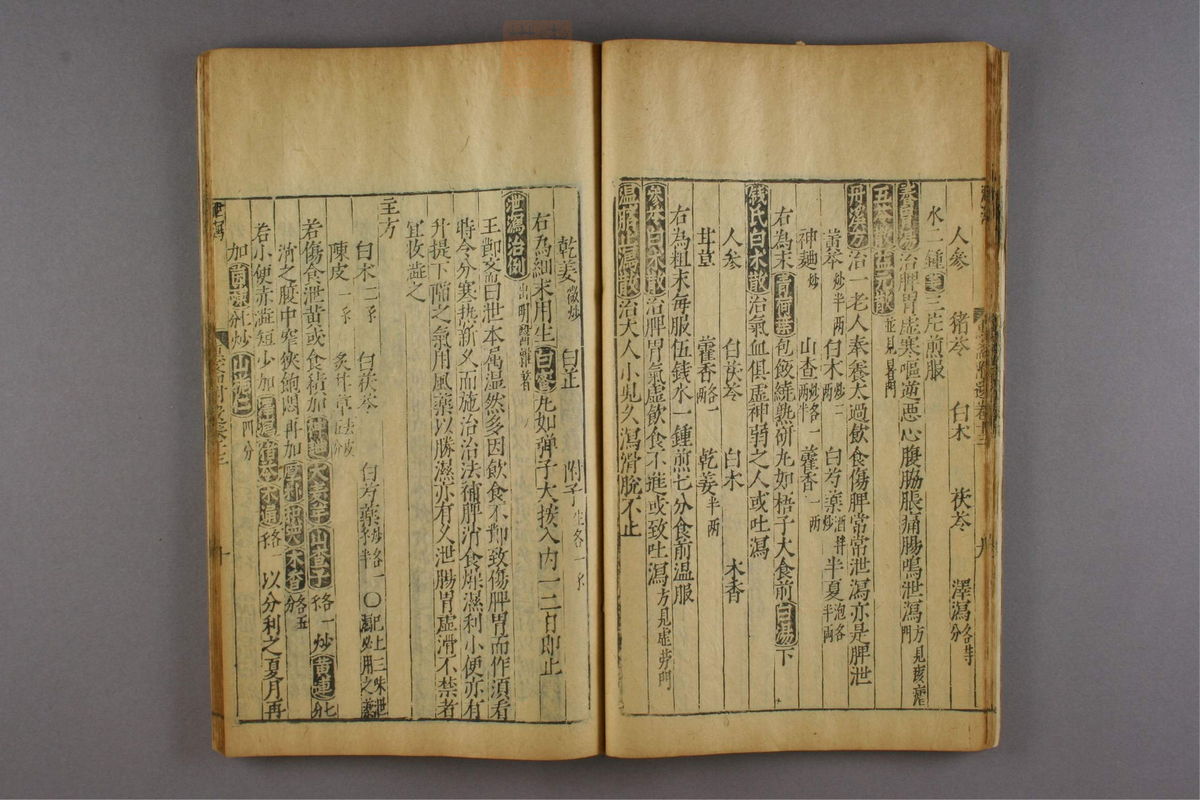 人參 猪苓 白术 茯苓 澤瀉各等分
水二鍾薑三片煎服
治脾胃虛寒嘔逆惡心腹脇脹痛腸鳴泄瀉方見
五苓散益元散並見暑門
丹溪方治一老人奉養太過飲食傷脾常常泄瀉亦是脾泄
黃芩炒半兩 白术炒二兩 白芍藥酒拌炒 半夏泡各半兩
神麯炒 山查炒各一兩 藿香一兩
右為末青荷葉包飯燒熟研丸如梧子大食前白湯下
錢氏白术散治氣血俱虛神弱之人或吐瀉
人參 白茯苓 白术 木香
甘草 藿香各一兩 乾姜半兩
右為粗末每服伍錢水一鍾煎七分食前温服
參苓白术散治脾胃氣虛飲食不進或致吐瀉方見虛勞門
温脾止瀉散治大人小兒久瀉滑脫不止
乾姜微炒 白芷 附子生各一錢
右為細末用生白蜜丸如彈子大撥入內一二寸即止
泄瀉治例出明醫雜著
王節齋曰泄本屬濕然多因飲食不節致傷脾胃而作須看
時令分寒熱新久而施治治法補脾消食燥濕利小便亦有
升提下陷之氣用風藥以勝濕亦有久泄腸胃虛滑不禁者
宜收澁之
主方
白术二錢 白茯苓 白芍藥炒各一錢半 〇
陳皮一錢 炙甘草去皮五分
若傷食泄黃或食積加神麯大麥芽山查子各一錢炒黃連七分
消之腹中窄狹飽悶再加厚朴枳實木香各五分
若小便赤澁短少加猪苓澤瀉木通各一錢以分利之夏月再
加茵陳七分炒山梔仁四分